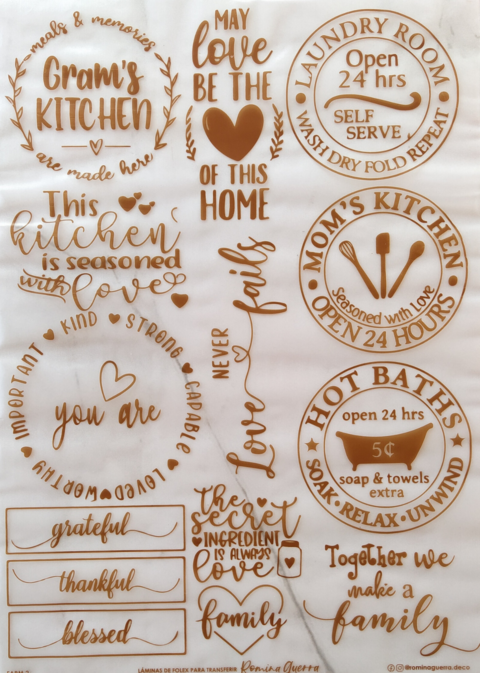 meals & memories
Gram's
KITCHEN
are made here
MAY
love
BE THE
OF THIS
HOME
LAUNDRY ROOM
Open
24 hrs
SELF
SERVE
WASH DRY FOLD REPEAT
This
kitchen
is seasoned
with love
MOM'S KITCHEN
Seasoned with Love
OPEN 24 HOURS
Love NEVER fails
IMPORTANT KIND STRONG CAPABLE LOVED WORTHY
you are
HOT BATHS
open 24 hrs
5¢
soap & towels
extra
SOAK • RELAX • UNWIND
grateful
thankful
blessed
the
secret
INGREDIENT
IS ALWAYS
love
family
Together we
make a
family
LÁMINAS DE FOLEX PARA TRANSFERIR Romina Guerra
@rominaguerra.deco